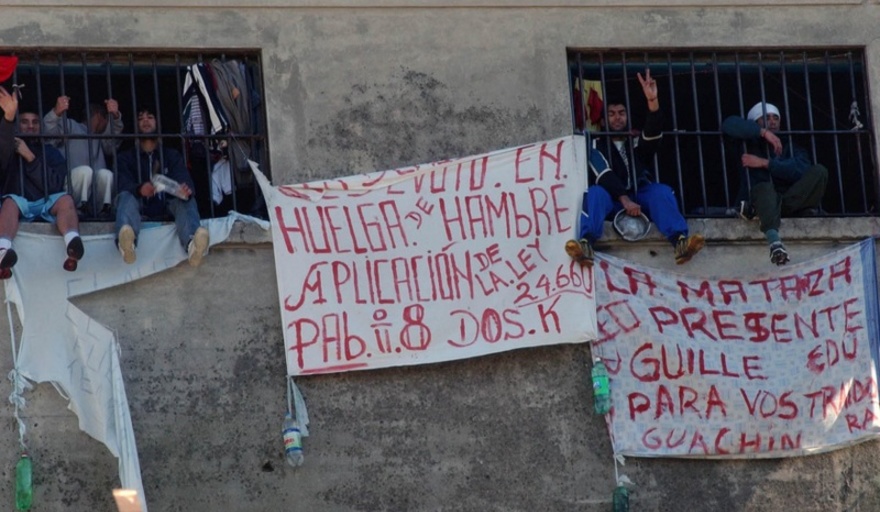 DEVOTO. EN.
HUELGA. DE HAMBRE
APLICACIÓN DE LA. LEY
24.660
PAB. ii. 8 DOS. K
LA. MATANZA
PRESENTE
GUILLE EDU
PARA VOS
GUACHIN RA